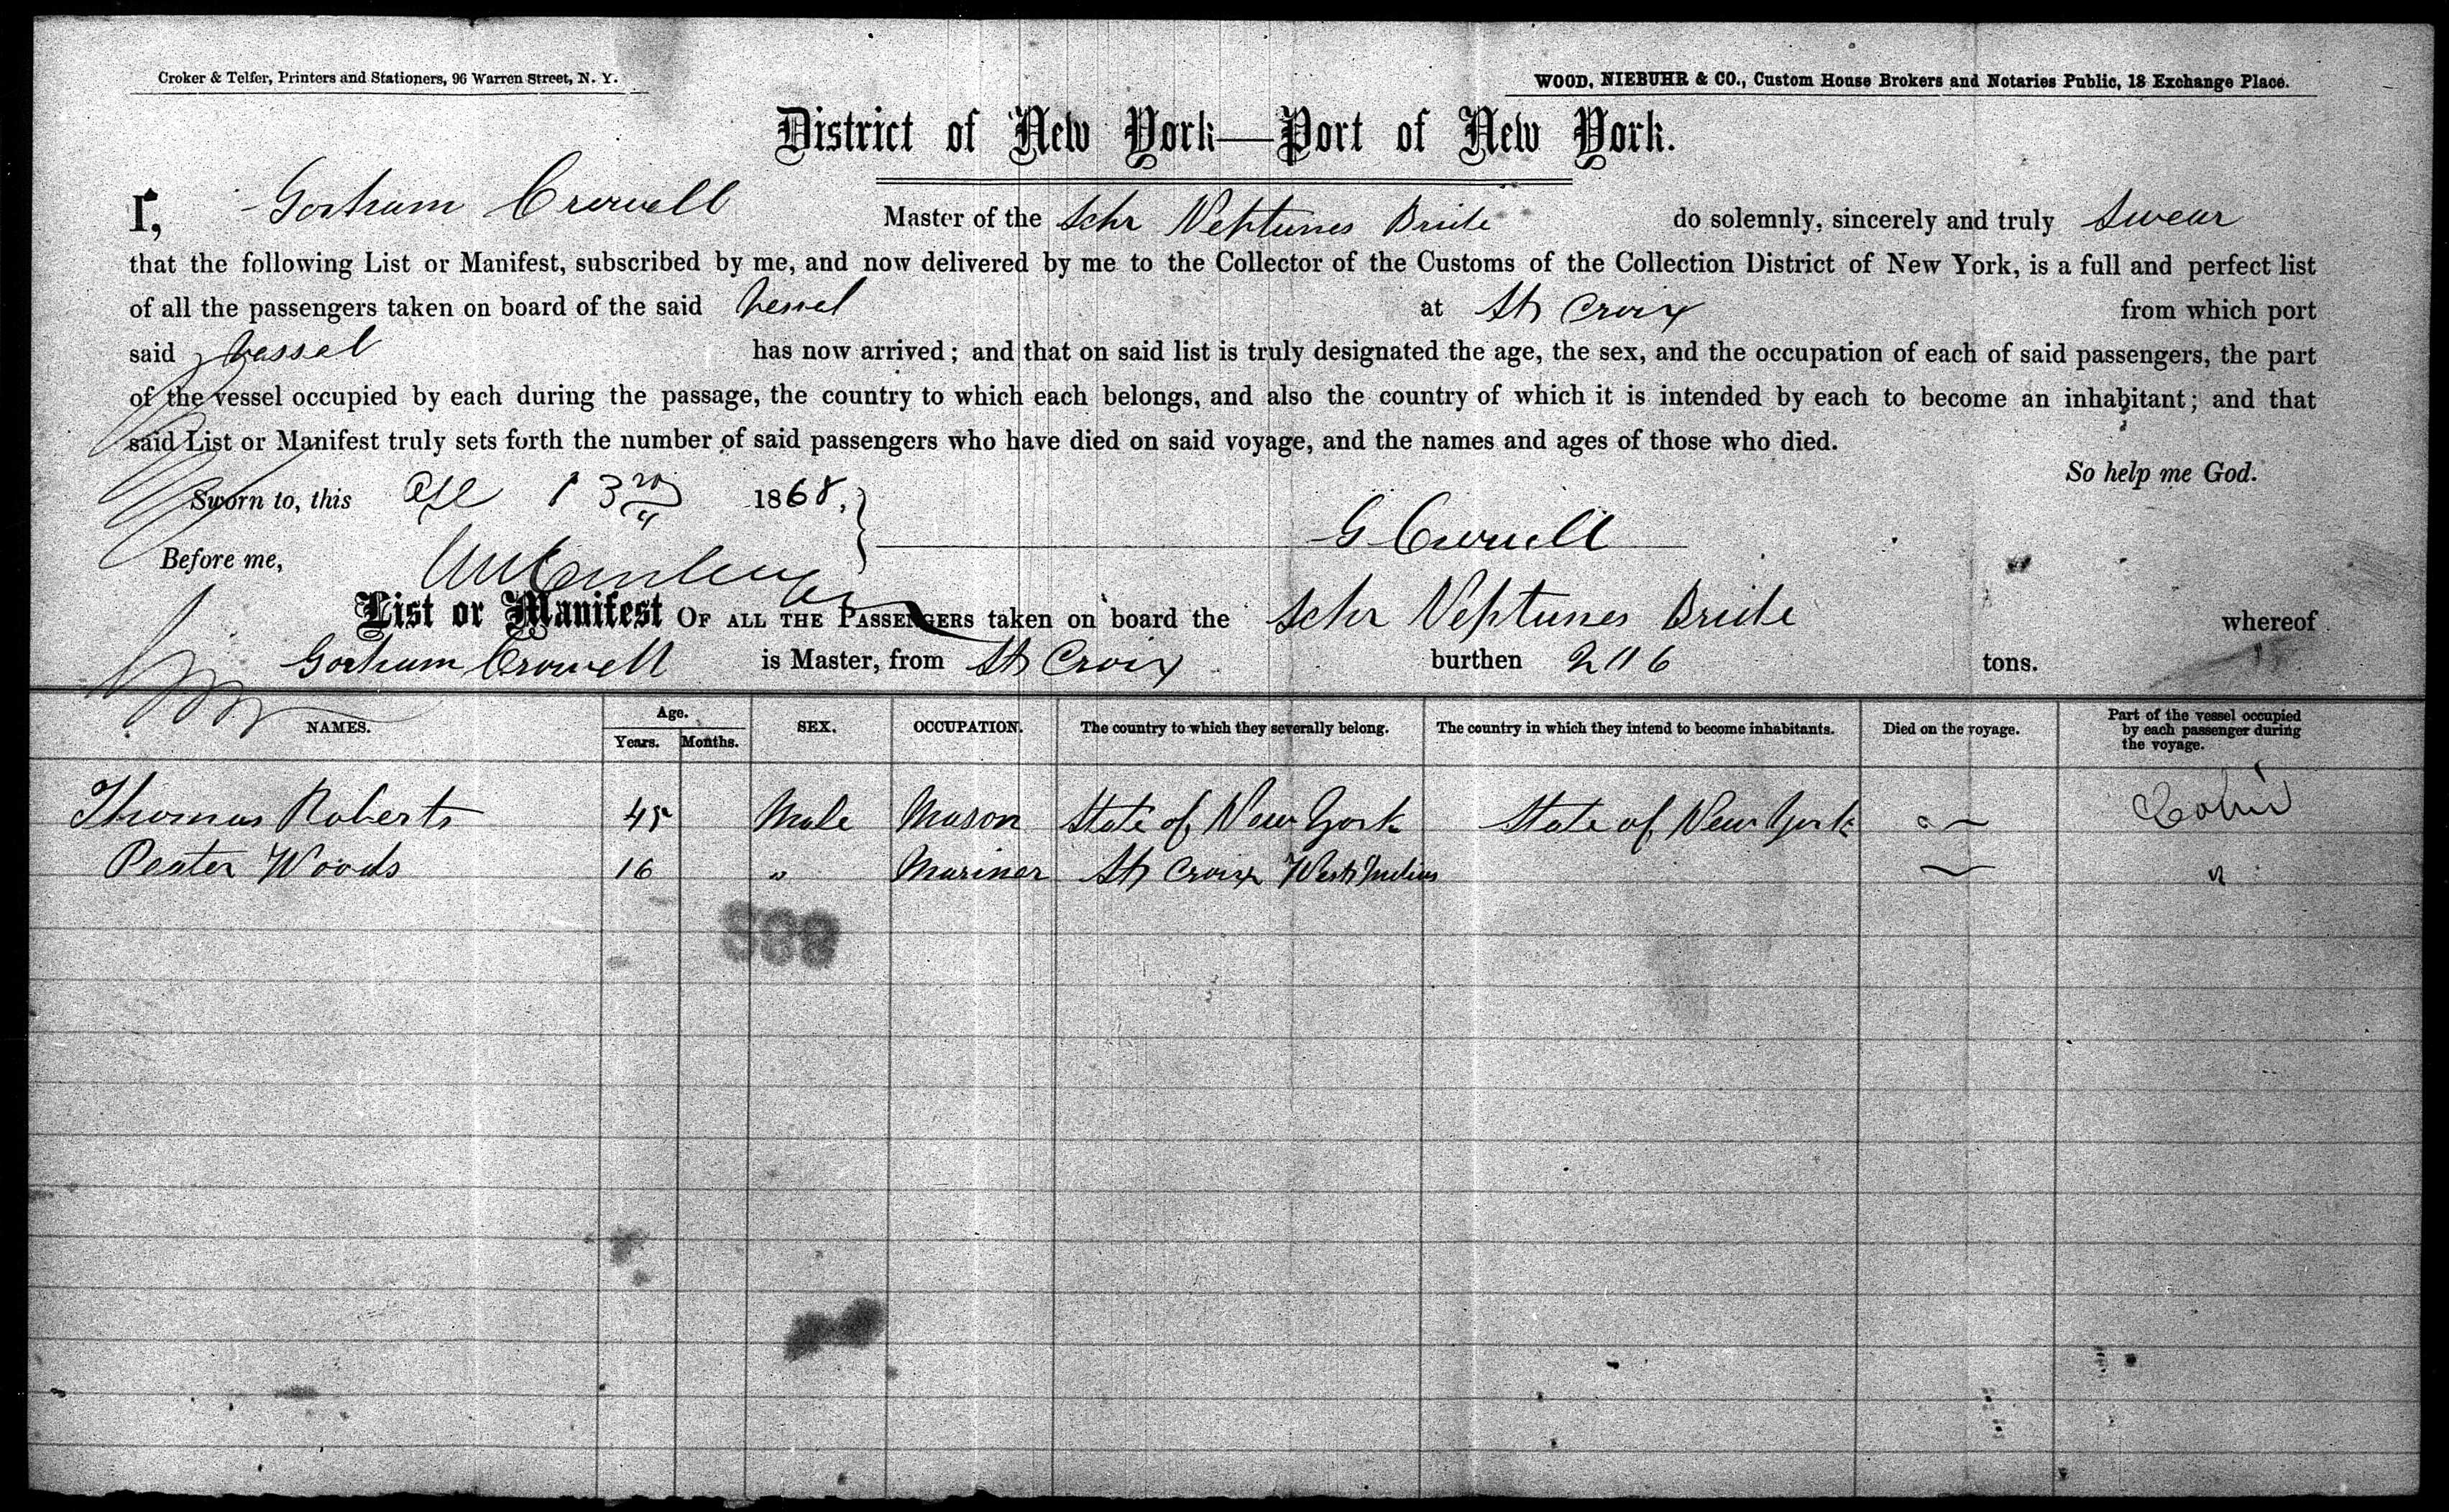 Croker & Telfer, Printers and Stationers, 96 Warren Street, N. Y.
WOOD, NIEBUHR & CO., Custom House Brokers and Notaries Public, 18 Exchange Place.
District of New York—Port of New York.
I, Gorham Crowell Master of the Schr Neptunes Bride do solemnly, sincerely and truly swear
that the following List or Manifest, subscribed by me, and now delivered by me to the Collector of the Customs of the Collection District of New York, is a full and perfect list
of all the passengers taken on board of the said vessel at St Croix from which port
said vessel has now arrived; and that on said list is truly designated the age, the sex, and the occupation of each of said passengers, the part
of the vessel occupied by each during the passage, the country to which each belongs, and also the country of which it is intended by each to become an inhabitant; and that
said List or Manifest truly sets forth the number of said passengers who have died on said voyage, and the names and ages of those who died.
So help me God.
Sworn to, this 1868,
G Crowell
Before me,
List or Manifest OF ALL THE PASSENGERS taken on board the Schr Neptunes Bride whereof
Gorham Crowell is Master, from St Croix burthen tons.
NAMES. Age. Years. Months. SEX. OCCUPATION. The country to which they severally belong. The country in which they intend to become inhabitants. Died on the voyage. Part of the vessel occupied by each passenger during the voyage.
Thomas Roberts 45 Male Mason State of New York State of New York Cabin
Peater Woods 16 " Mariner St Croix West Indies "